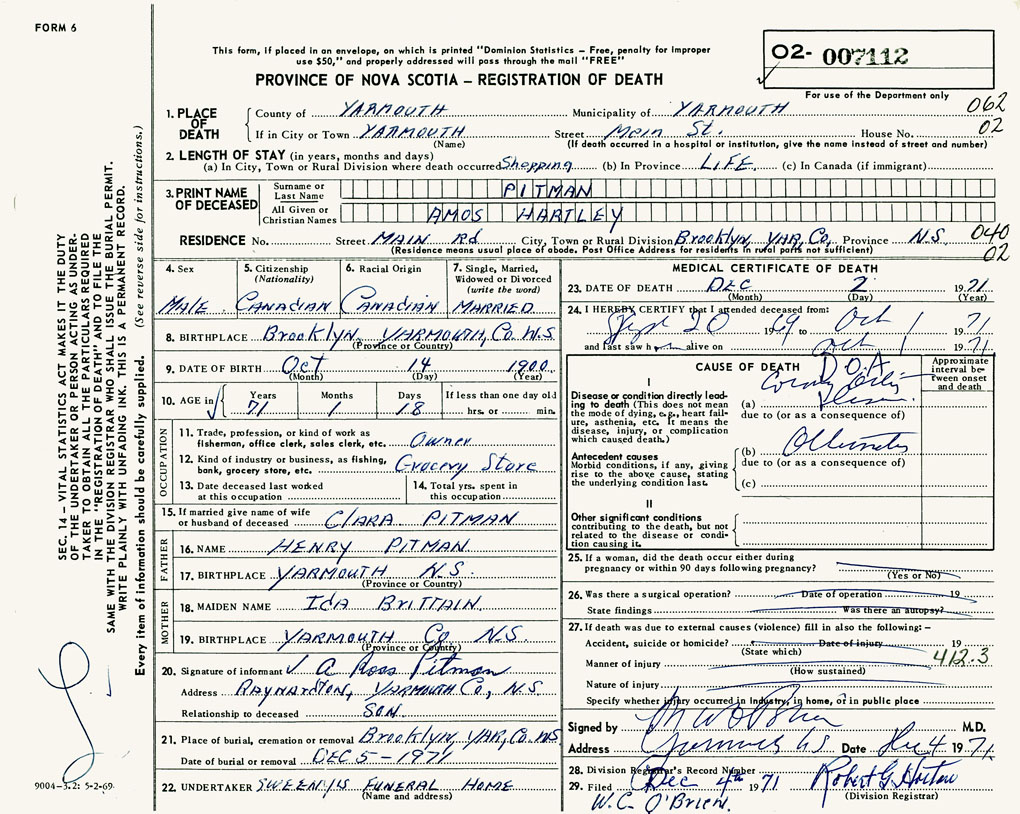 FORM 6
This form, if placed in an envelope, on which is printed "Dominion Statistics – Free, penalty for improper
use $50," and properly addressed will pass through the mail "FREE"
PROVINCE OF NOVA SCOTIA – REGISTRATION OF DEATH
02- 007112
For use of the Department only
062
02
1. PLACE OF DEATH
County of YARMOUTH Municipality of YARMOUTH
If in City or Town YARMOUTH Street Main St. House No.
(Name) (If death occurred in a hospital or institution, give the name instead of street and number)
2. LENGTH OF STAY (in years, months and days)
(a) In City, Town or Rural Division where death occurred Shopping (b) In Province LIFE. (c) In Canada (if immigrant)
3. PRINT NAME OF DECEASED
Surname or Last Name PITMAN
All Given or Christian Names AMOS HARTLEY
RESIDENCE No. Street MAIN Rd City, Town or Rural Division Brooklyn, YAR, Co, Province N.S
(Residence means usual place of abode. Post Office Address for residents in rural parts not sufficient)
040
02
4. Sex MALE
5. Citizenship (Nationality) CANADIAN
6. Racial Origin CANADIAN
7. Single, Married, Widowed or Divorced (write the word) MARRIED
8. BIRTHPLACE Brooklyn, YARMOUTH, Co. N.S
(Province or Country)
9. DATE OF BIRTH Oct 14 1900
(Month) (Day) (Year)
10. AGE in Years 71 Months 1 Days 18 If less than one day old hrs. or min.
OCCUPATION
11. Trade, profession, or kind of work as
fisherman, office clerk, sales clerk, etc. Owner
12. Kind of industry or business, as fishing,
bank, grocery store, etc. Grocery Store
13. Date deceased last worked
at this occupation
14. Total yrs. spent in
this occupation
15. If married give name of wife
or husband of deceased CLARA PITMAN
FATHER
16. NAME HENRY PITMAN
17. BIRTHPLACE YARMOUTH N.S.
(Province or Country)
MOTHER
18. MAIDEN NAME IDA BRITTAIN
19. BIRTHPLACE YARMOUTH Co N.S.
(Province or Country)
20. Signature of informant A Ross Pitman
Address RAYNARDTON, YARMOUTH Co, N.S.
Relationship to deceased SON
21. Place of burial, cremation or removal Brooklyn, YAR, Co. NS
Date of burial or removal DEC 5 - 1971
22. UNDERTAKER SWEENY'S FUNERAL HOME
(Name and address)
MEDICAL CERTIFICATE OF DEATH
23. DATE OF DEATH DEC 2 1971
(Month) (Day) (Year)
24. I HEREBY CERTIFY that I attended deceased from:
Sept 20 1969 to Oct 1 1971
and last saw him alive on Oct 1 1971
CAUSE OF DEATH
Approximate interval between onset and death
D.O.A
I
Disease or condition directly leading to death (This does not mean the mode of dying, e.g., heart failure, asthenia, etc. It means the disease, injury, or complication which caused death.)
(a)
due to (or as a consequence of)
Antecedent causes
Morbid conditions, if any, giving rise to the above cause, stating the underlying condition last.
(b)
due to (or as a consequence of)
(c)
II
Other significant conditions
contributing to the death, but not related to the disease or condition causing it.
25. If a woman, did the death occur either during
pregnancy or within 90 days following pregnancy?
(Yes or No)
26. Was there a surgical operation? Date of operation 19
State findings Was there an autopsy?
27. If death was due to external causes (violence) fill in also the following: –
Accident, suicide or homicide? Date of injury 19
(State which)
412.3
Manner of injury
(How sustained)
Nature of injury
Specify whether injury occurred in Industry, in home, or in public place
Signed by M.D.
Address Date Dec 4 1971
28. Division Registrar's Record Number
29. Filed Dec 4th 1971 Robert G. Horton
(Division Registrar)
W.C. O'BRIEN.
SEC. 14 – VITAL STATISTICS ACT MAKES IT THE DUTY
OF THE UNDERTAKER OR PERSON ACTING AS UNDER-
TAKER TO OBTAIN ALL THE PARTICULARS REQUIRED
IN THE "REGISTRATION OF DEATH" AND TO FILE THE
SAME WITH THE DIVISION REGISTRAR WHO SHALL ISSUE THE BURIAL PERMIT.
WRITE PLAINLY WITH UNFADING INK. THIS IS A PERMANENT RECORD.
Every item of information should be carefully supplied. (See reverse side for instructions.)
9004-3.2: 5-2-69